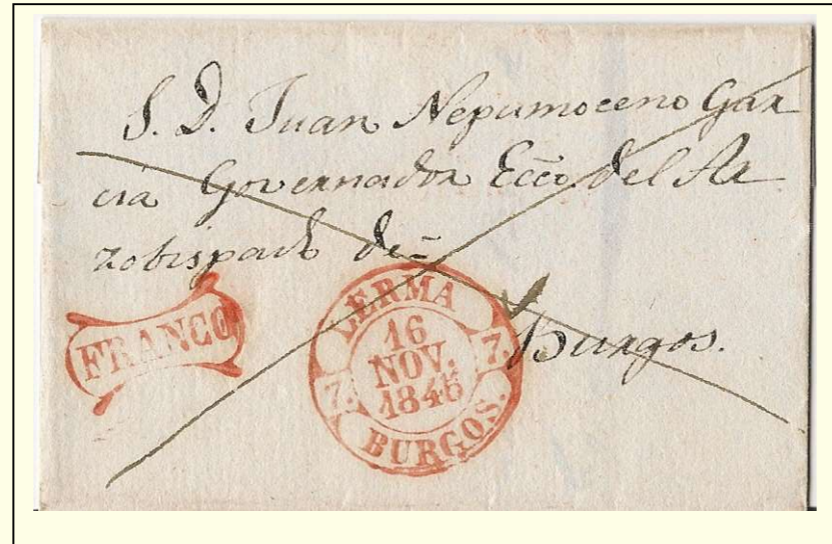 S. D. Juan Nepumoceno Gar
cia Governador Ecco. del Ar
zobispado de=
Burgos.
FRANCO
LERMA
16
NOV.
7. 7.
BURGOS.